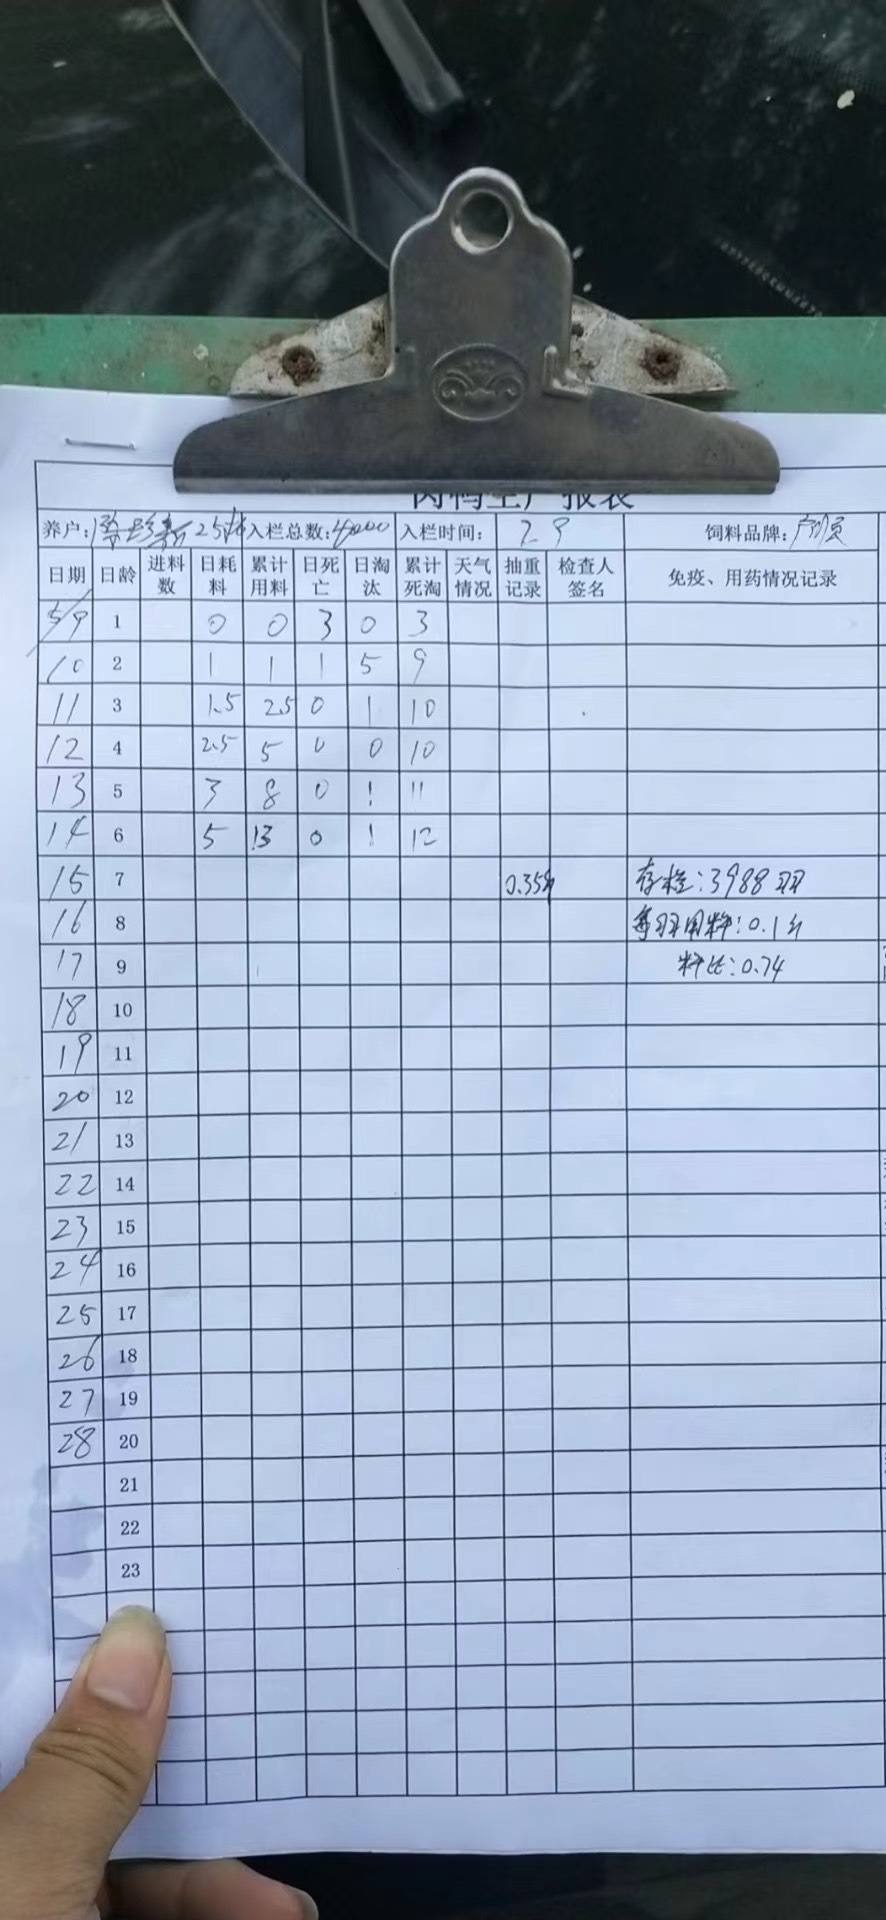 肉鸭生产报表
养户: 25 入栏总数:4000 入栏时间: 饲料品牌:
日期 日龄 进料数 日耗料 累计用料 日死亡 日淘汰 累计死淘 天气情况 抽重记录 检查人签名 免疫、用药情况记录
5/9 1 0 0 3 0 3
10 2 1 1 1 5 9
11 3 1.5 2.5 0 1 10
12 4 2.5 5 0 0 10
13 5 3 8 0 1 11
14 6 5 13 0 1 12
15 7 存栏:3988羽
16 8 每羽用料:0.1斤
17 9 料比:0.74
18 10
19 11
20 12
21 13
22 14
23 15
24 16
25 17
26 18
27 19
28 20
21
22
23